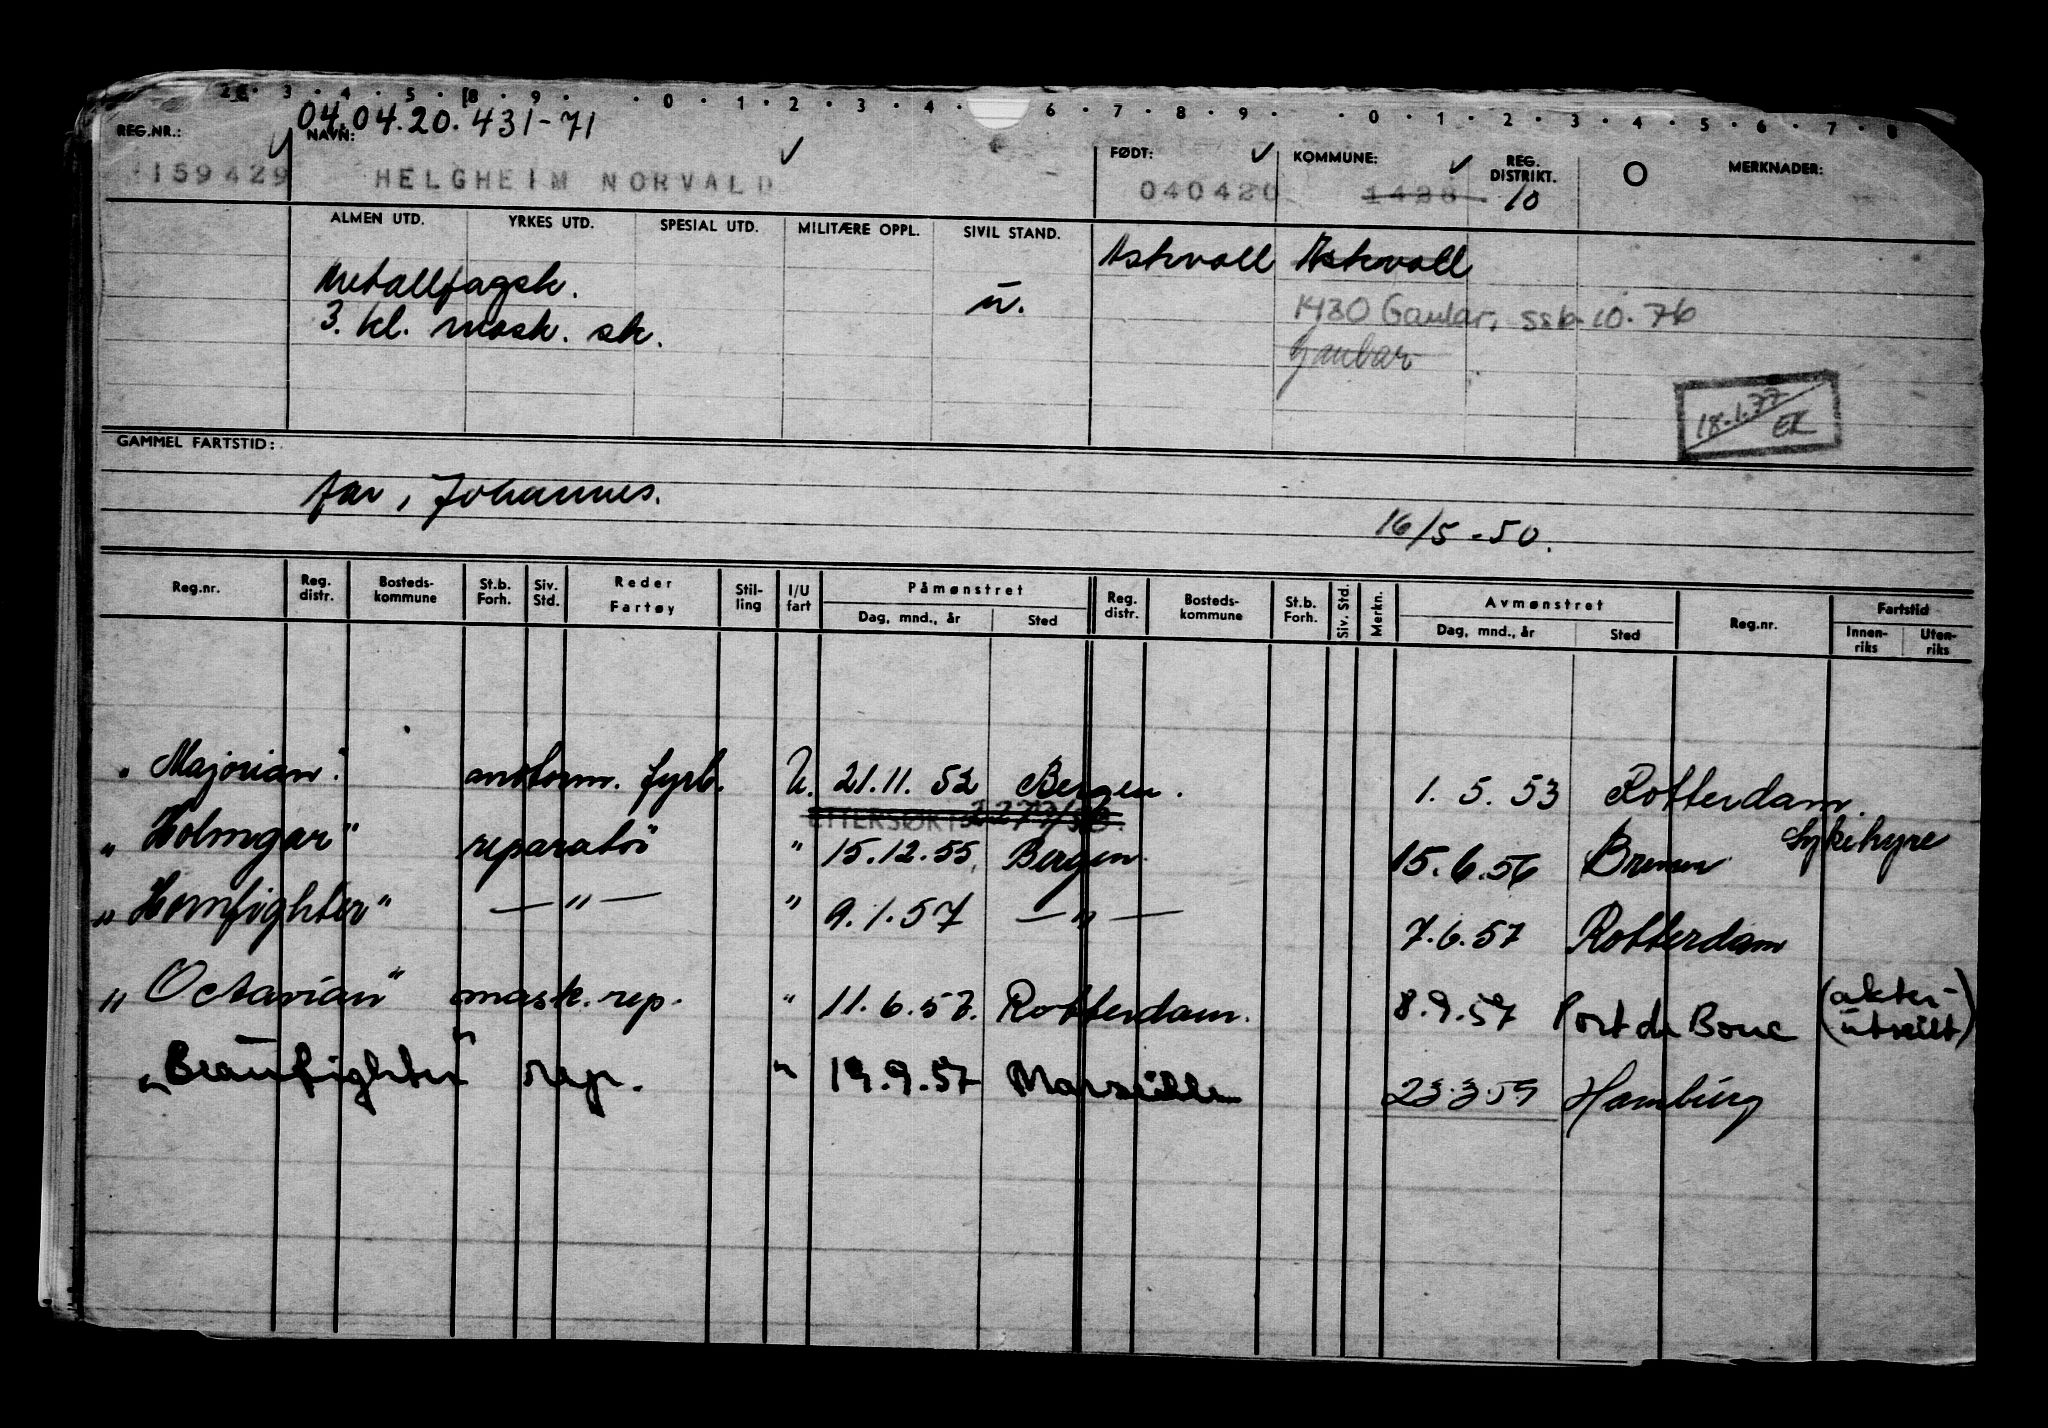 2 . 3 . 4 . 5 . 8 . 9 . . 0 . 1 . 2 . 3 . 4 . 6 . 7 . 8 . 9 . . 0 . 1 . 2 . 3 . 4 . 5 . 6 . 7 . 8
04.04.20.431-71
REG.NR.: NAVN: FØDT: KOMMUNE: REG. DISTRIKT. O MERKNADER:
159429 HELGHEIM NORVALD 040420 1428 10
ALMEN UTD. YRKES UTD. SPESIAL UTD. MILITÆRE OPPL. SIVIL STAND.
Askvoll Askvoll
Metallfagsk. u.
3. kl. mask. sk. 1430 Gaular, ssb. 10.76
Gaular
18.1.77 EK
GAMMEL FARTSTID:
far, Johannes.
16/5-50.
Reg.nr. Reg. distr. Bosteds-kommune St.b. Forh. Siv. Std. Reder Fartøy Stil-ling I/U fart Påmønstret Dag, mnd., år Sted Reg. distr. Bosteds-kommune St.b. Forh. Siv. Std. Merkn. Avmønstret Dag, mnd., år Sted Reg.nr. Fartstid Innen-riks Uten-riks
"Majorian" motorm. fyrb. U. 21.11.52 Bergen. 1.5.53 Rotterdam
ETTERSØKT
"Holmgar" reparatör " 15.12.55 Bergen. 15.6.56 Bremen Sykehyre
"Hornfighter" —"— " 9.1.57 —"— 7.6.57 Rotterdam
"Octavian" mask.rep. " 11.6.57. Rotterdam. 8.9.57 Port de Bouc (akter-utseilt)
"Beaufighter" rep. " 19.9.57 Marseille 23.3.59 Hamburg